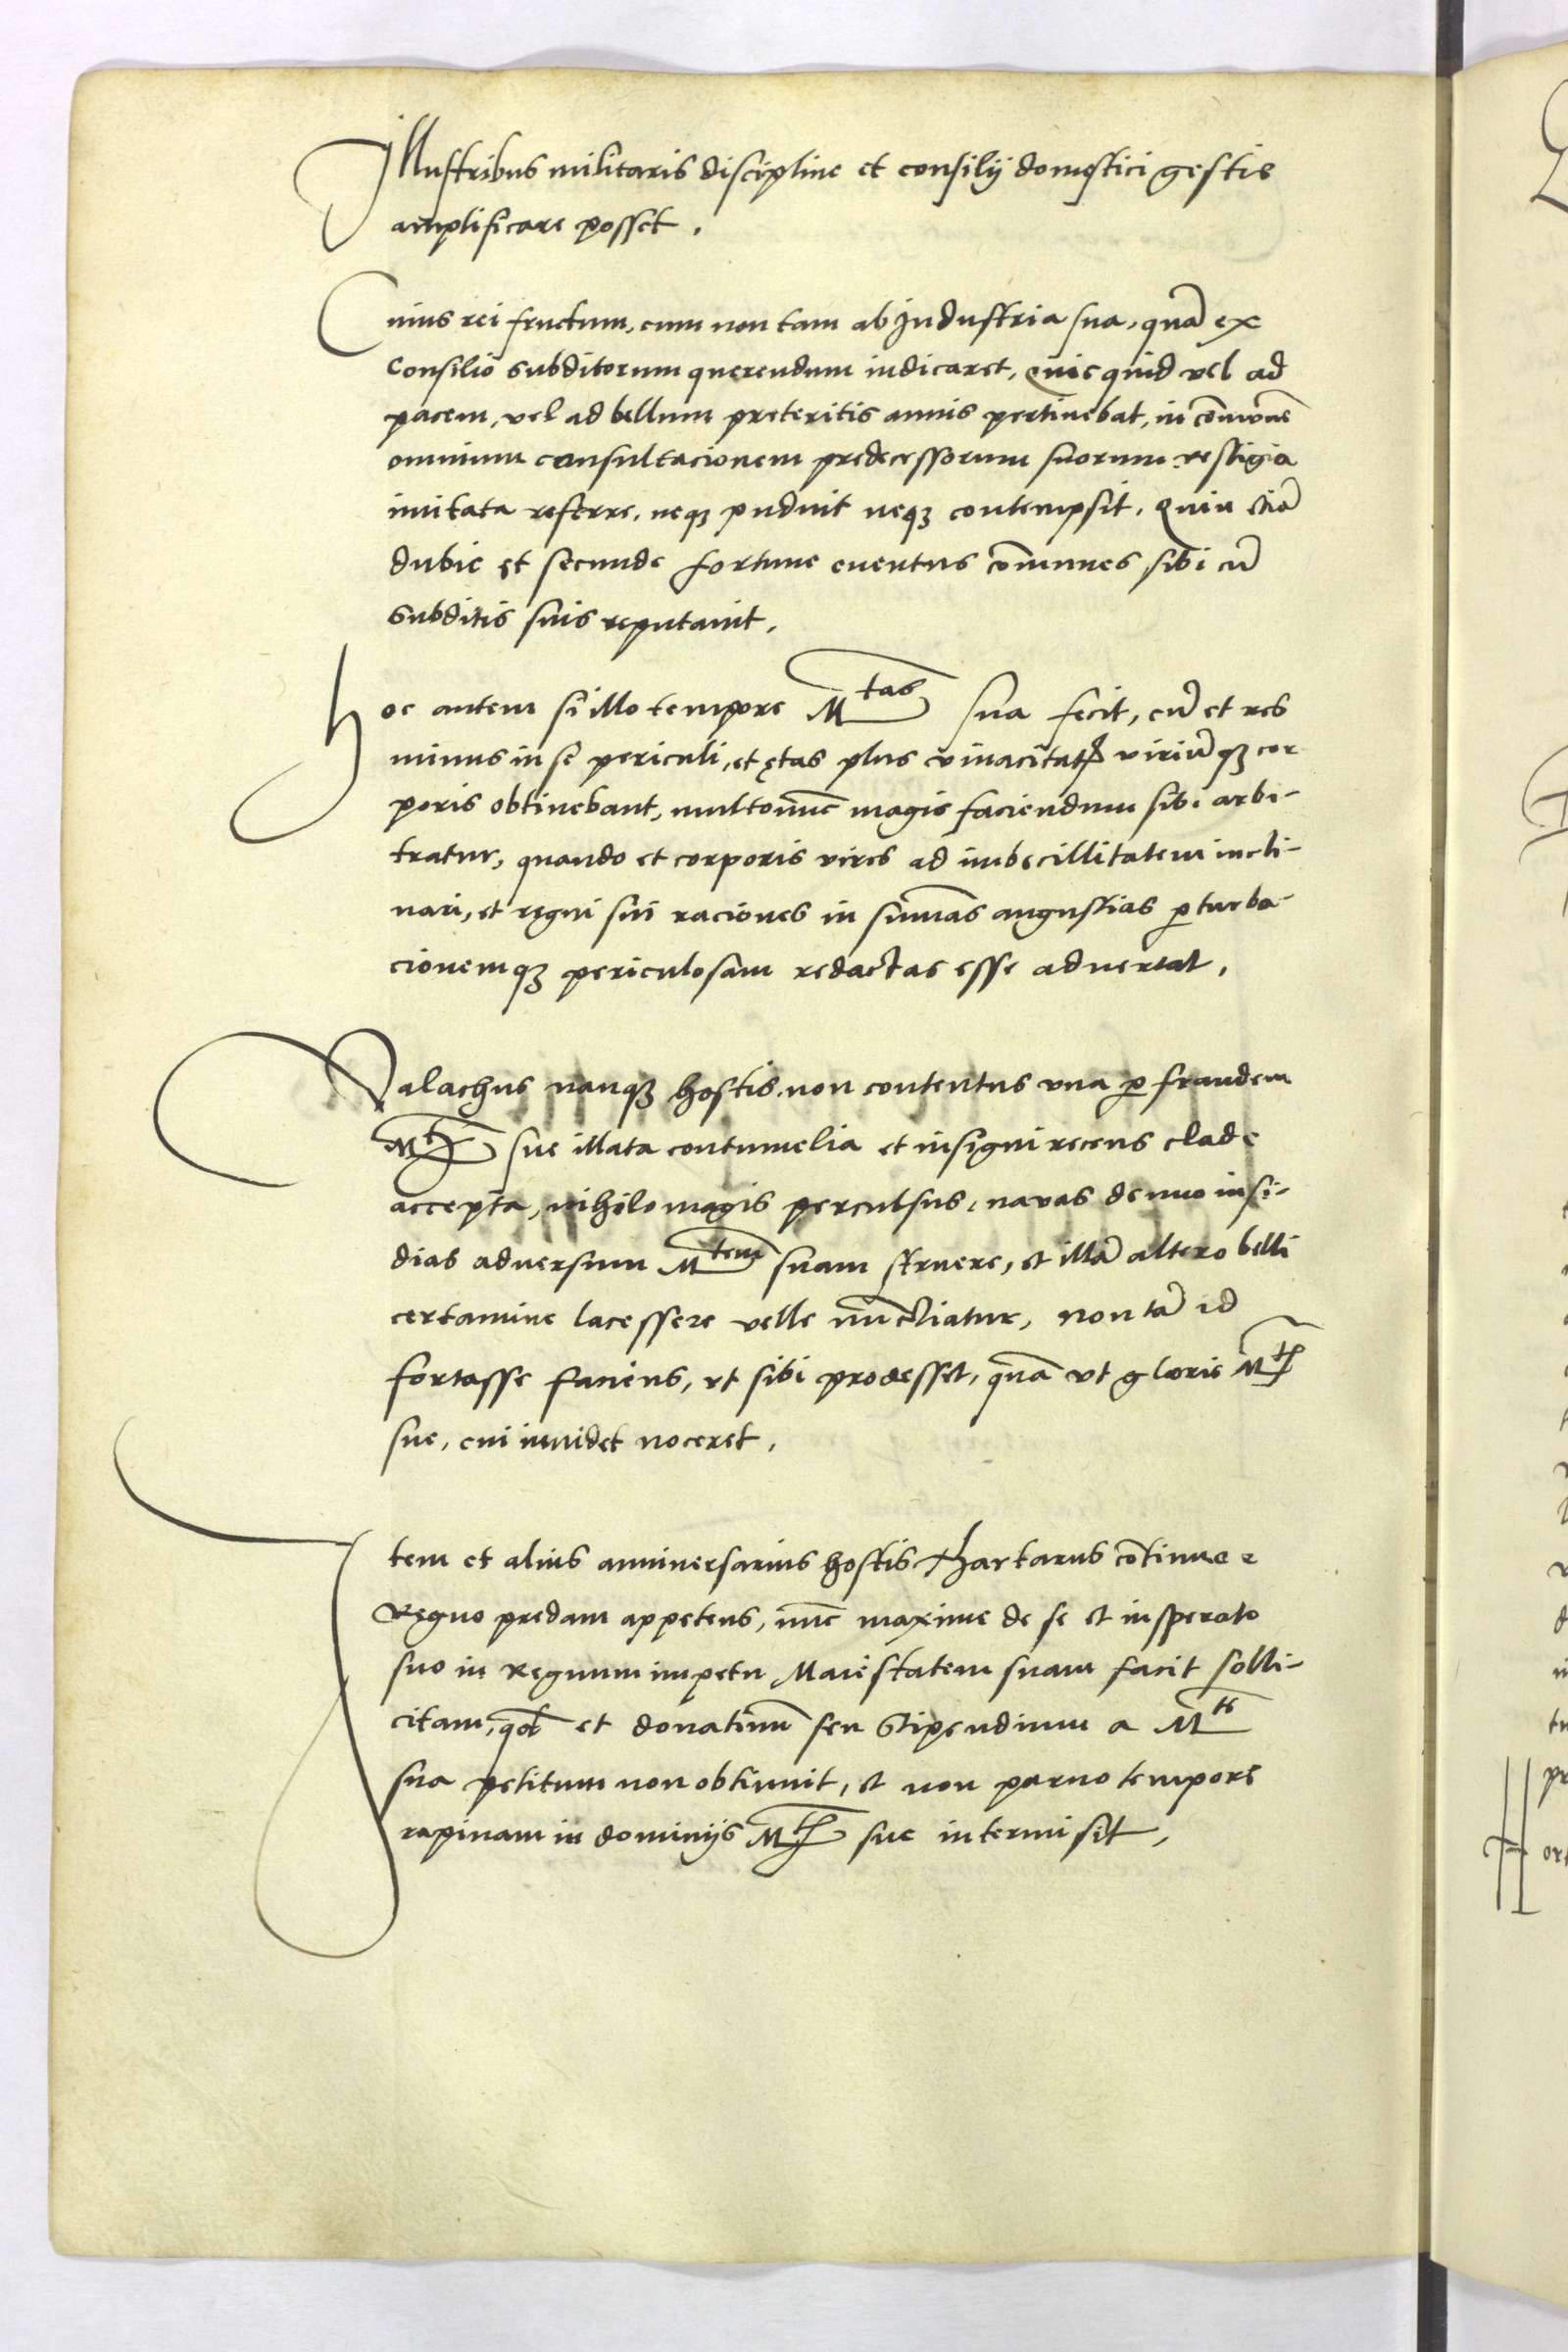 Illustribus militaris discipline et consilij domestici gestis
amplificare posset.
Cuius rei fructum, cum non tam ab Industria sua, quã ex
Consilio subditorum querendum iudicaret, quicquid vel ad
pacem, vel ad bellum preteritis annis pertinebat, in cõmonẽ
omnium consultacionem predecessorum suorum vestigia
imitata referre, neqꝫ puduit neqꝫ contempsit. Quin etiã
dubie et secunde fortune euentus cõmunes sibi cũ
subditis suis reputauit.
Hoc autem si illo tempore Mtas sua fecit, cũ et res
minus in se periculi, et ętas plus viuacitatꝭ viriũqꝫ cor
poris obtinebant, multo nũc magis faciendum sibi arbi-
tratur, quando et corporis vires ad imbecillitatem incli-
nari, et regni sui raciones in sum̃as angustias ꝑturba-
cionemqꝫ periculosam redactas esse aduertat.
Valachus nanqꝫ hostis, non contentus vna ꝑ fraudem
Mtꝭ sue illata contumelia et insigni recens clade
accepta, nihilo magis perculsus, nouas denuo insi-
dias aduersum Mtem suam struere, et illã altero belli
certamine lacessere velle nũctiatur, non tã id
fortasse faciens, vt sibi prodesset, quã vt glorie Mtꝭ
sue, cui inuidet noceret.
Item et alius anniuersarius hostis Thartarus cõtinue e
Regno predam appetens, nũc maxime de se et insperato
suo in Regnum impetu Maiestatem suam facit solli-
citam, qđ et donatiuũ seu Stipendium a Mte
sua petitum non obtinuit, et non paruo tempore
rapinam in dominijs Mtꝭ sue intermisit.